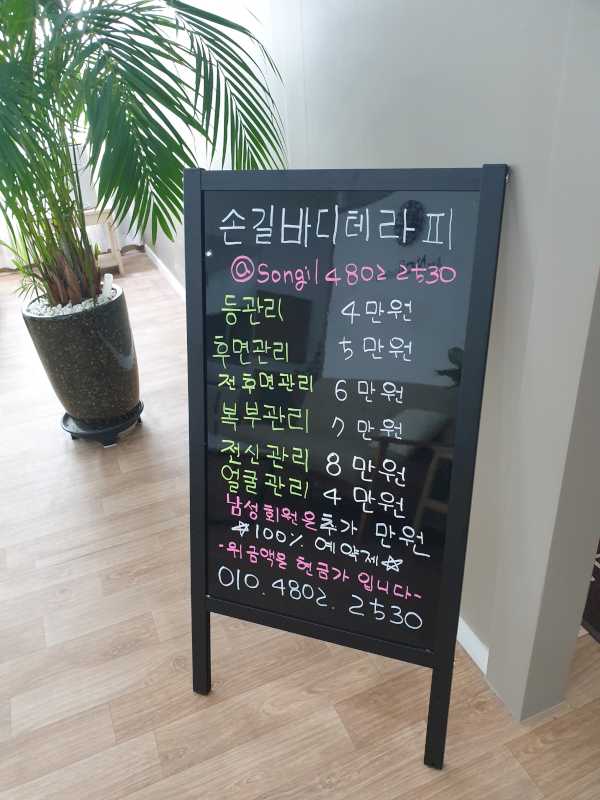 손길바디테라피
@Songil 4802 2530
등관리 4만원
후면관리 5만원
전후면관리 6만원
복부관리 7만원
전신관리 8만원
얼굴관리 4만원
남성회원은 추가 만원
☆100% 예약제☆
-위금액은 현금가 입니다-
010.4802.2530